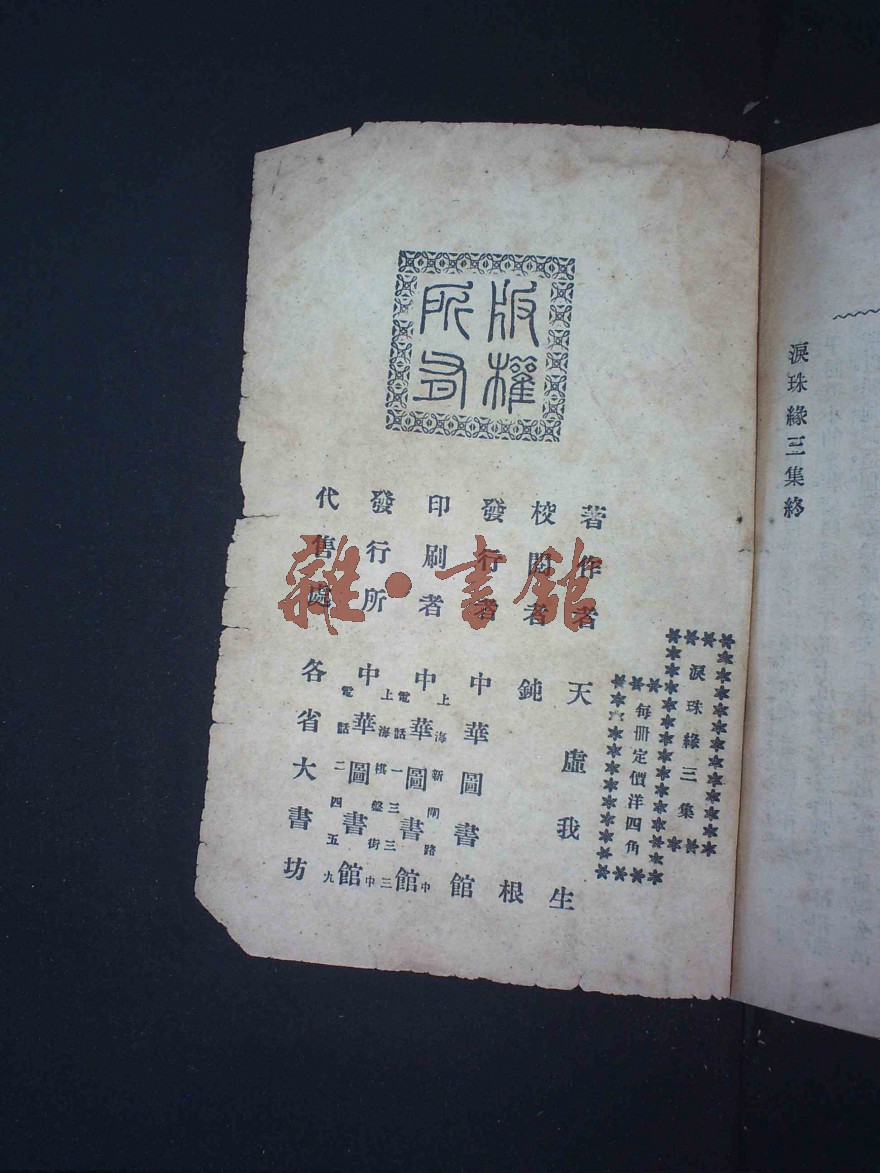 淚珠緣三集終
淚珠緣三集
每冊定價洋四角
版權
所有
著作者 天虛我生
校閱者 鈍根
發行者 中華圖書館
印刷者 上海新閘路中 中華圖書館 電話一三三三
發行所 上海棋盤街中 中華圖書館 電話二四五九
代售處 各省大書坊
雜·書館